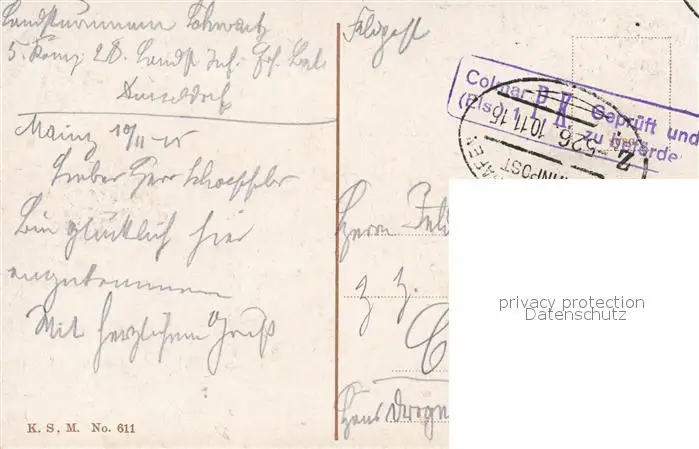 Landsturmmann Schwartz
5. Komp. 28. Landst. Inf. Ers. Batl.
Düsseldorf
Mainz 10/11 15
Lieber Herr
Bin glücklich hier
angekommen
Mit herzlichem Gruß
K. S. M. No. 611
Feldpost
Colmar P.K. Geprüft und
(Els) 1 zu beförde
BAHNPOST
Z. 526 10.11.15
Herrn Fel
z. Z.
C
Hans
privacy protection
Datenschutz